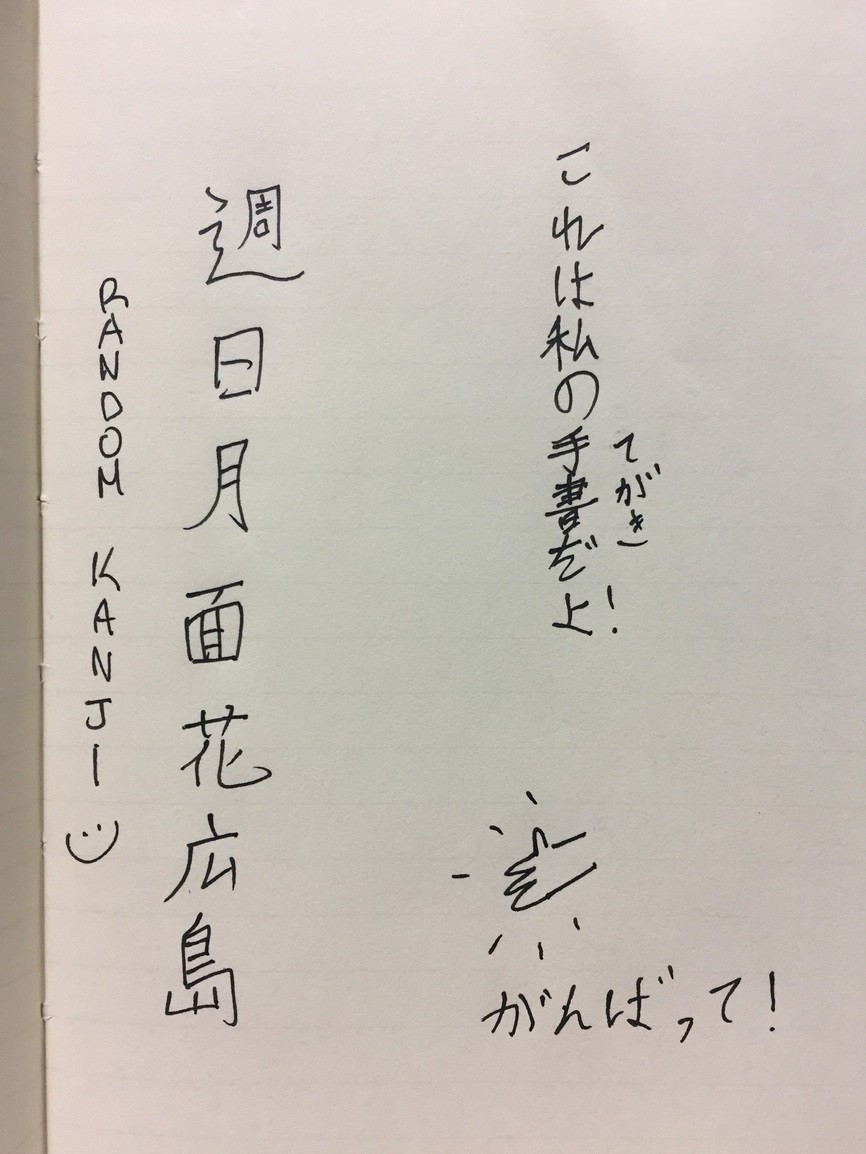 これは私の手書だよ!
てがき
がんばって!
週日月面花広島
RANDOM KANJI